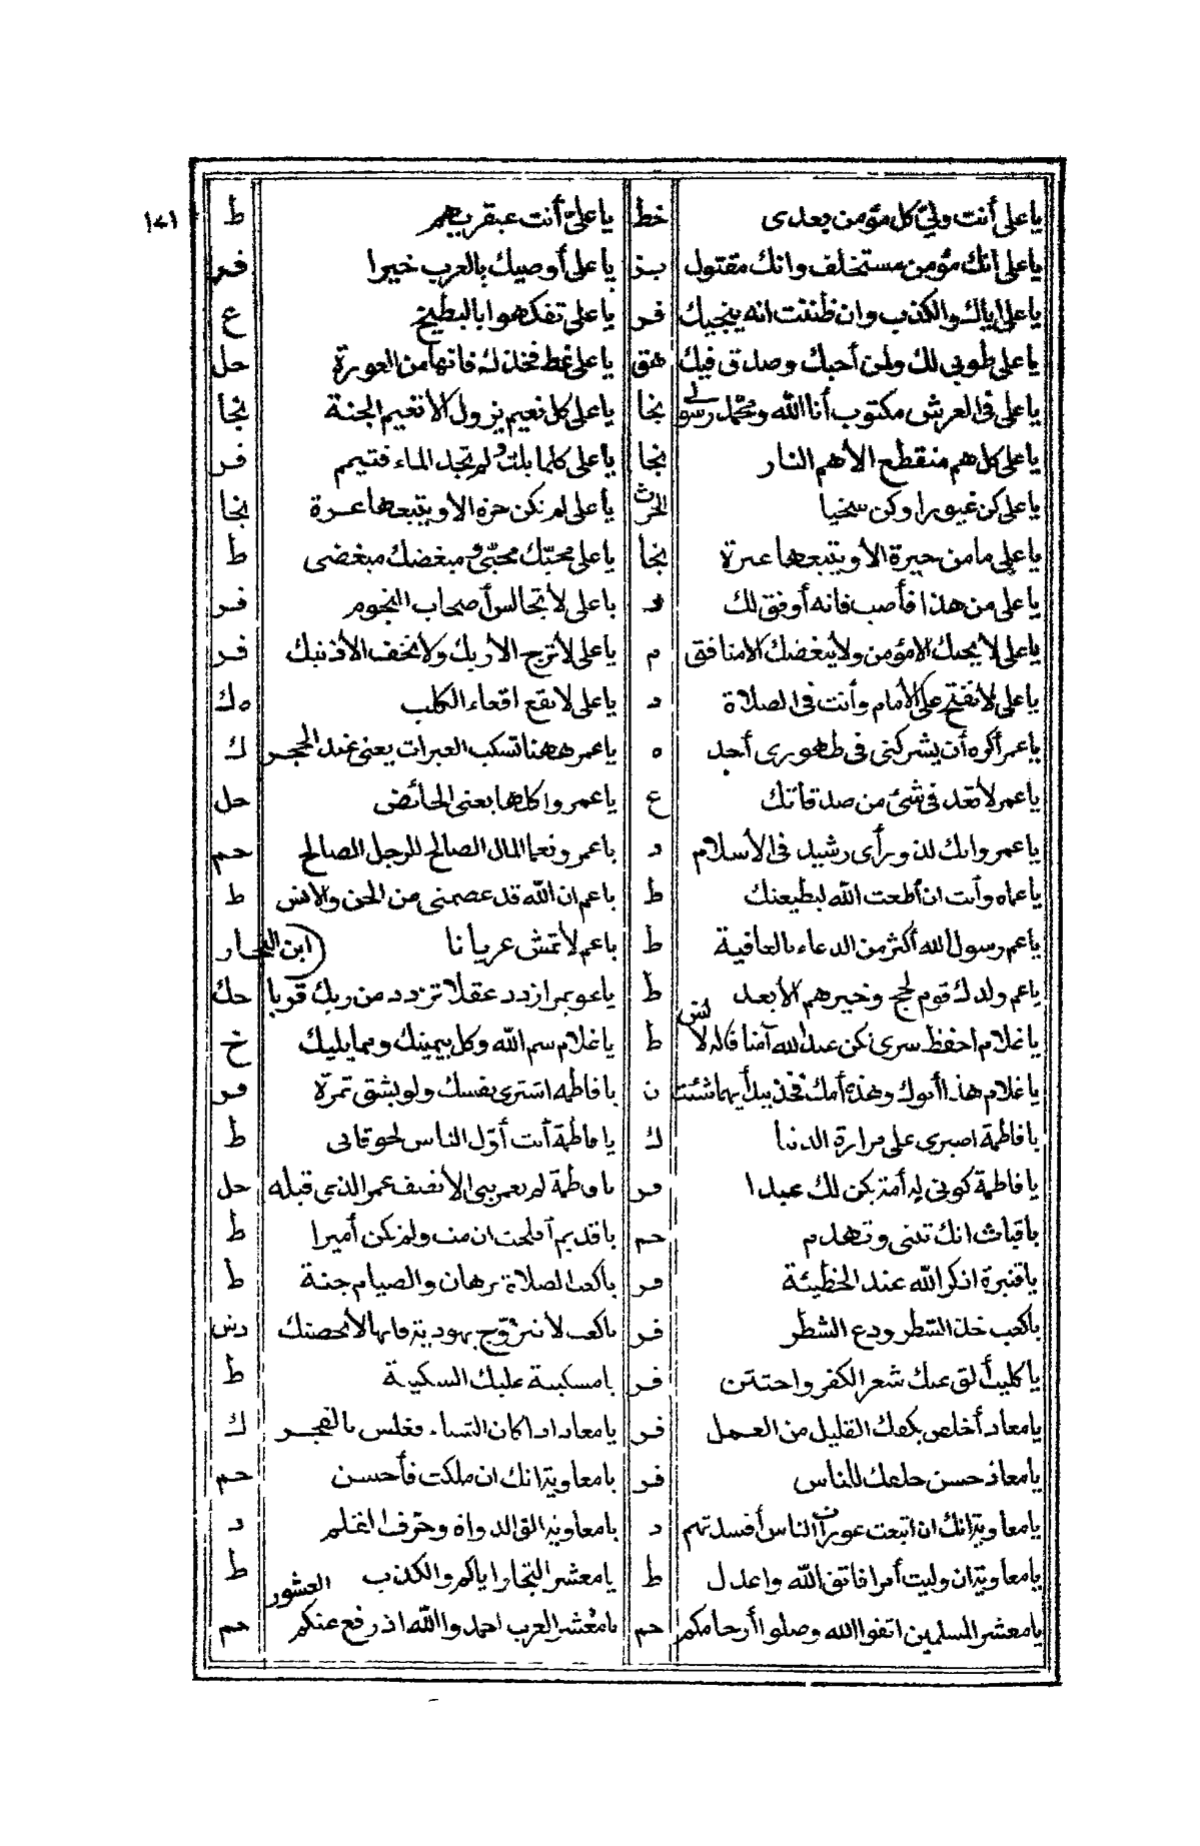 ١٧١
يا على أنت ولىّ كل مؤمن بعدى خط يا علىّ أنت عبقريهم ط
يا على انك مؤمن مستخلف وانك مقتول بز يا على أوصيك بالعرب خيرا فر
يا على اياك والكذب وان ظننت انه ينجيك فر يا على تفكهوا بالبطيخ ع
يا على طوبى لك ولمن أحبك وصدق فيك هق يا على غط فخذك فانها من العورة حل
يا على فى العرش مكتوب أنا الله ومحمد رسولى نجا يا على كل نعيم يزول الا نعيم الجنة نجا
يا على كل هم منقطع الا هم النار نجا يا على كلما بلت ولم تجد الماء فتيمم فر
يا على كن غيورا وكن سخيا الحرث يا على لم نكن حزه الا ويتبعها عبرة نجا
يا على ما من حيرة الا ويتبعها عبرة نجا يا على محبّك محبّى ومبغضك مبغضى ط
يا على من هذا فأصب فانه أوفق لك د يا على لا تجالس أصحاب النجوم فر
يا على لا يحبك الا مؤمن ولا يبغضك الا منافق م يا على لا ترج الا ربك ولا تخف الا ذنبك فر
يا على لا تفتح على الامام وأنت فى الصلاة د يا على لا تقع اقعاء الكلب ه ك
يا عمر أكره أن يشركنى فى طهورى أحد ه يا عمر ههنا تسكب العبرات يعنى عند الحجر ك
يا عمر لا تعد فى شئ من صدقاتك ع يا عمر واكلها يعنى الحائض حل
يا عمر وانك لذو رأى رشيد فى الاسلام د يا عمر ونعما المال الصالح للرجل الصالح حم
يا عماه وأنت ان أطعت الله ليطيعنك ط يا عم ان الله قد عصمنى من الجن والانس ط
يا عم رسول الله أكثر من الدعاء بالعافية ط يا عم لا تمش عريانا ابن النجار
يا عم ولدك قوم لحج وخيرهم الابعد ط يا عويمر ازدد عقلا تزدد من ربك قربا حك
يا غلام احفظ سرى تكن عبد الله آمنا قاله لانس ط يا غلام سم الله وكل بيمينك ومما يليك خ
يا غلام هذا أبوك وهذه أمك فخذ بيد أيهما شئت ن يا فاطمة اشترى نفسك ولو بشق تمرة فر
يا فاطمة اصبرى على مرارة الدنيا ك يا فاطمة أنت أوّل الناس لحوقا بى ط
يا فاطمة كونى له أمة يكن لك عبدا فر يا فاطمة لم يعمر نبى الا نصف عمر الذى قبله حل
يا قباث انك تبنى وتهدم حم يا قديم أفلحت ان مت ولم تكن أميرا ط
يا قنبرة اذكر الله عند الخطيئة فر يا كعب الصلاة برهان والصيام جنة ط
يا كعب خذ الشطر ودع الشطر فر يا كعب لا تتزوّج يهودية فانها لا تحصنك
يا كليب ألق عنك شعر الكفر واختتن فر يا مسكينة عليك السكينة ط
يا معاذ أخلص يكفك القليل من العمل فر يا معاذ اذا كان الشتاء فغلس بالفجر ك
يا معاذ حسن خلقك للناس فر يا معاوية انك ان ملكت فأحسن حم
يا معاوية انك ان اتبعت عورات الناس أفسدتهم د يا معاوية الق الدواة وحرّف القلم د
يا معاوية ان وليت أمرا فاتق الله واعدل ط يا معشر التجار اياكم والكذب ط
يا معشر المسلمين اتقوا الله وصلوا أرحامكم حم يا معشر العرب احمدوا الله اذ رفع عنكم العشور حم